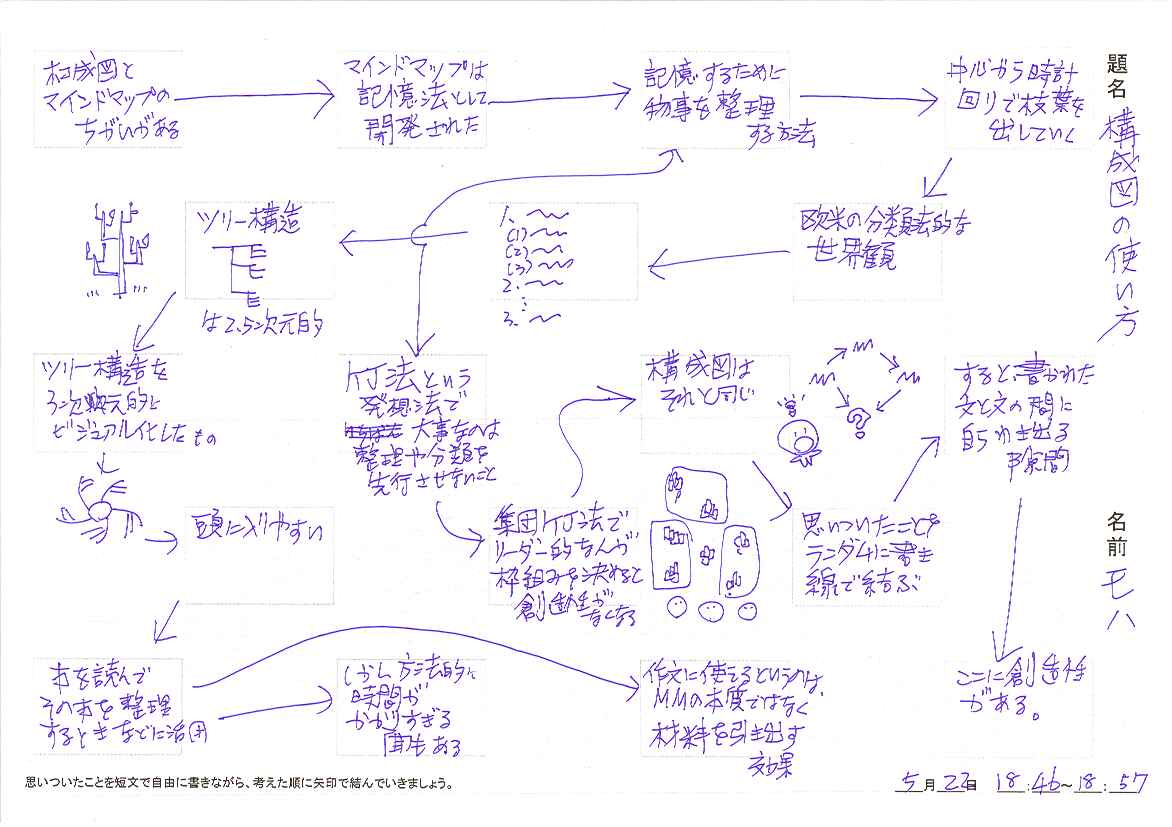 題名 構成図の使い方
名前 モハ
構成図と
マインドマップの
ちがいがある
マインドマップは
記憶法として
開発された
記憶するために
物事を整理
する方法
中心から時計
回りで枝葉を
出していく
欧米の分類法的な
世界観
1. 〜〜
(1)〜〜
(2)〜〜
(3)〜〜
2. 〜〜
:
3. 〜
ツリー構造
は2.5次元的
ツリー構造を
3次元的に
ビジュアル化したもの
頭に入りやすい
本を読んで
その本を整理
するときなどに活用
しかし方法的に
時間が
かかりすぎる
面もある
作文に使えるというのは、
MMの本質ではなく
材料を引き出す
効果
KJ法という
発想法で
大事なのは
整理や分類を
先行させないこと
集団KJ法で
リーダー的なんが
枠組みを決めると
創造性が
なくなる
構成図は
それと同じ
?
思いついたことを
ランダムに書き
線で結ぶ
すると、書かれた
文と文の間に
自らわき出る
隙間
ここに創造性
がある。
思いついたことを短文で自由に書きながら、考えた順に矢印で結んでいきましょう。
5月22日 18:46〜18:57